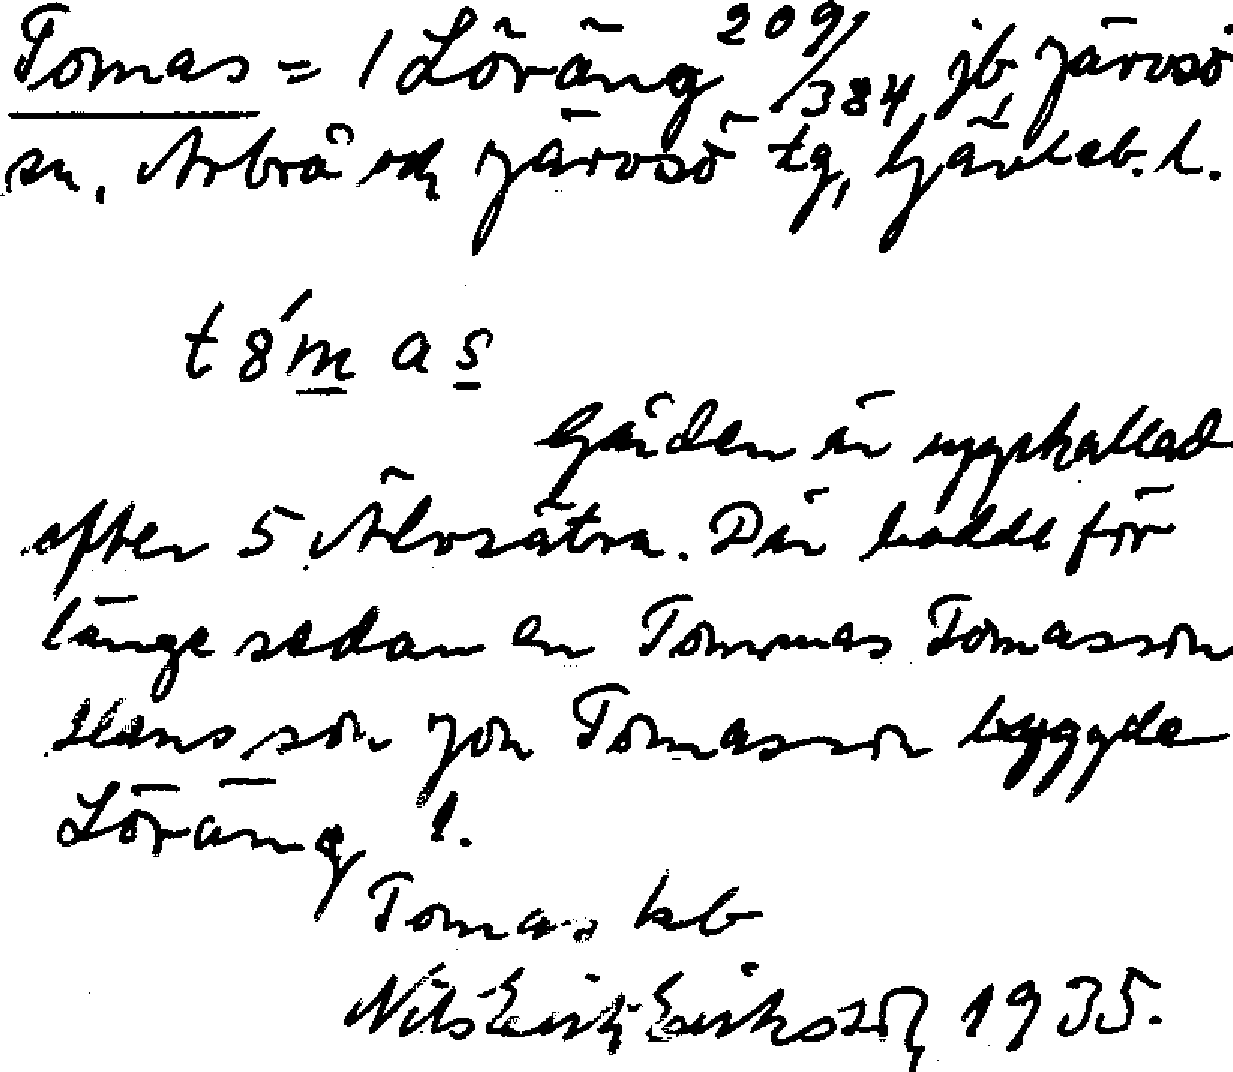 Tomas = 1 Löräng 209/384, jb, Järvsö
sn, Arbrå och Järvsö tg, Gävleb. l.
t8́m a s
Gården är uppkallad
efter 5 Älvsätra. Där bodde för
länge sedan en Tommas Tomasson
Hans son Jon Tomasson byggde
Löräng 1.
Tomas kb
Nils Erik Eriksson, 1935.